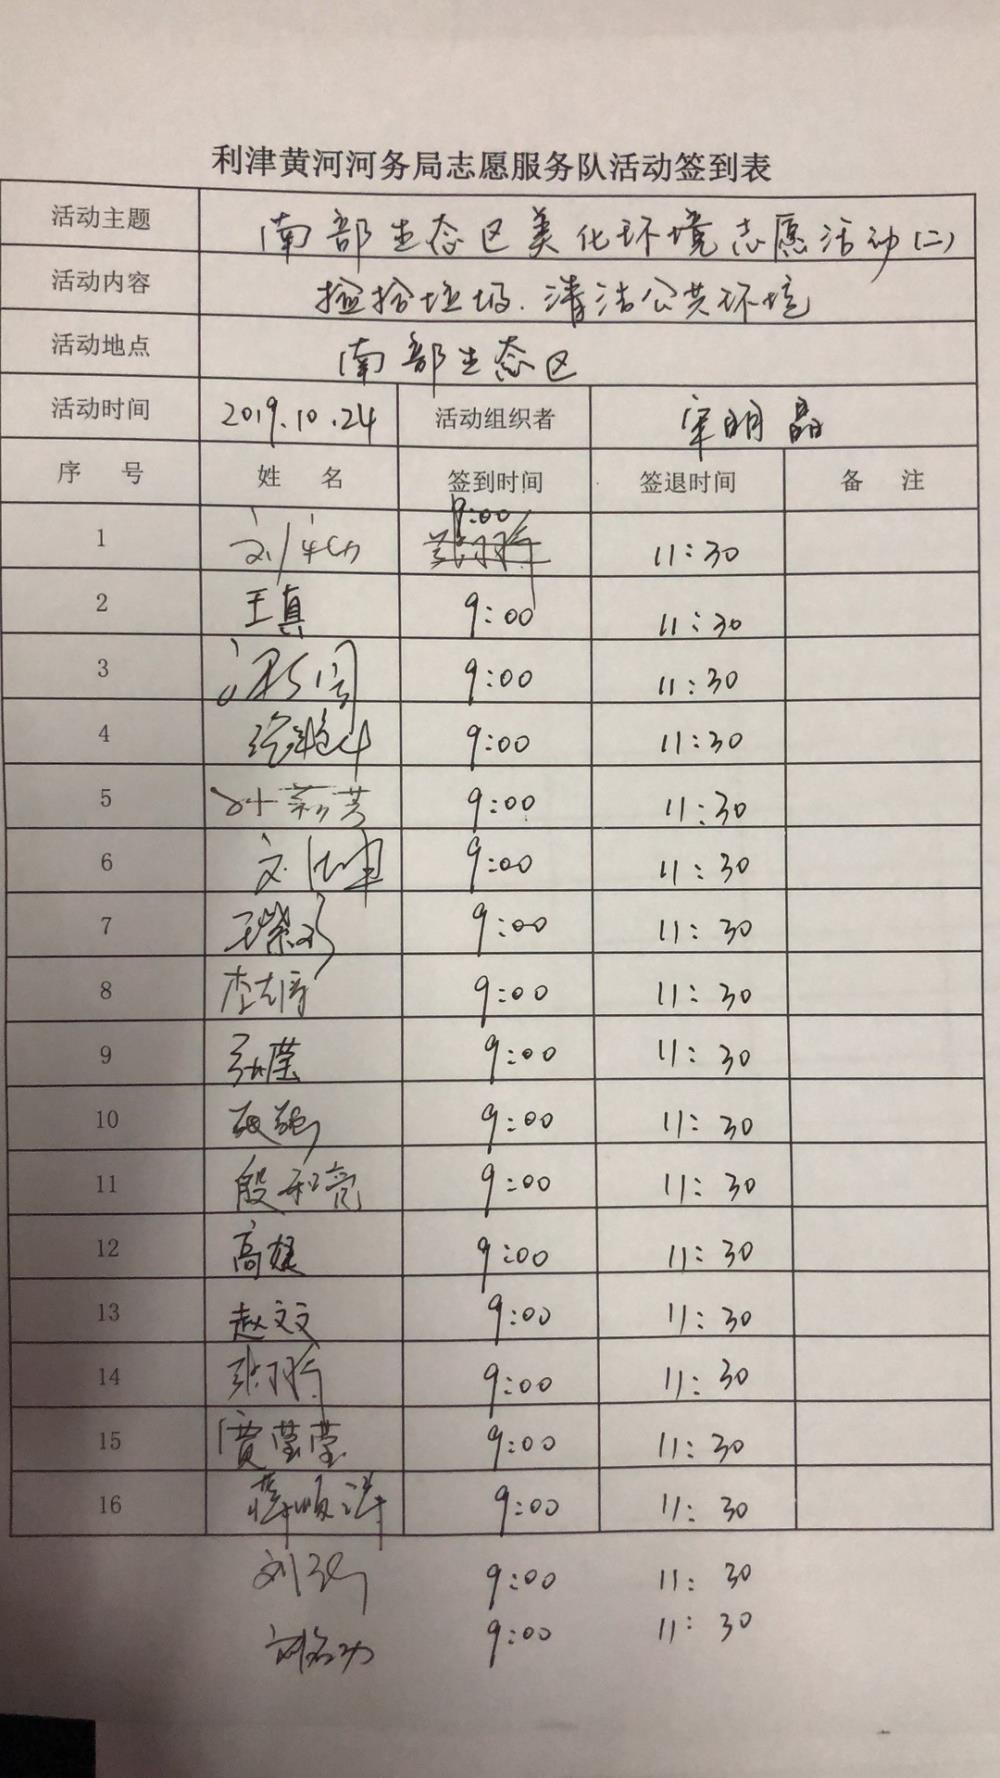 利津黄河河务局志愿服务队活动签到表
活动主题 南部生态区美化环境志愿活动(二)
活动内容 捡拾垃圾.清洁公共环境
活动地点 南部生态区
活动时间 2019.10.24 活动组织者 宋明晶
序 号 姓 名 签到时间 签退时间 备 注
1 9:00 11:30
2 王真 9:00 11:30
3 9:00 11:30
4 9:00 11:30
5 9:00 11:30
6 9:00 11:30
7 9:00 11:30
8 9:00 11:30
9 张莹 9:00 11:30
10 9:00 11:30
11 殷和亮 9:00 11:30
12 9:00 11:30
13 赵文文 9:00 11:30
14 9:00 11:30
15 贾莹莹 9:00 11:30
16 9:00 11:30
9:00 11:30
9:00 11:30